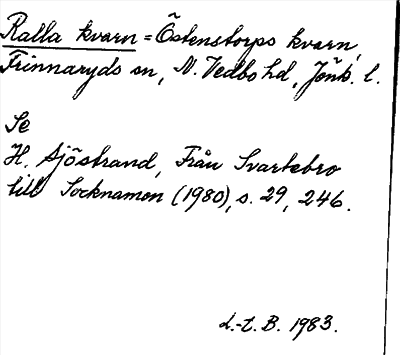 Ralla kvarn = Östenstorps kvarn,
Frinnaryds sn, N. Vedbo hd, Jönk. l.
Se
H. Sjöstrand, Från Svartebro
till Socknamon (1980), s. 29, 246.
L.-t. B. 1983.